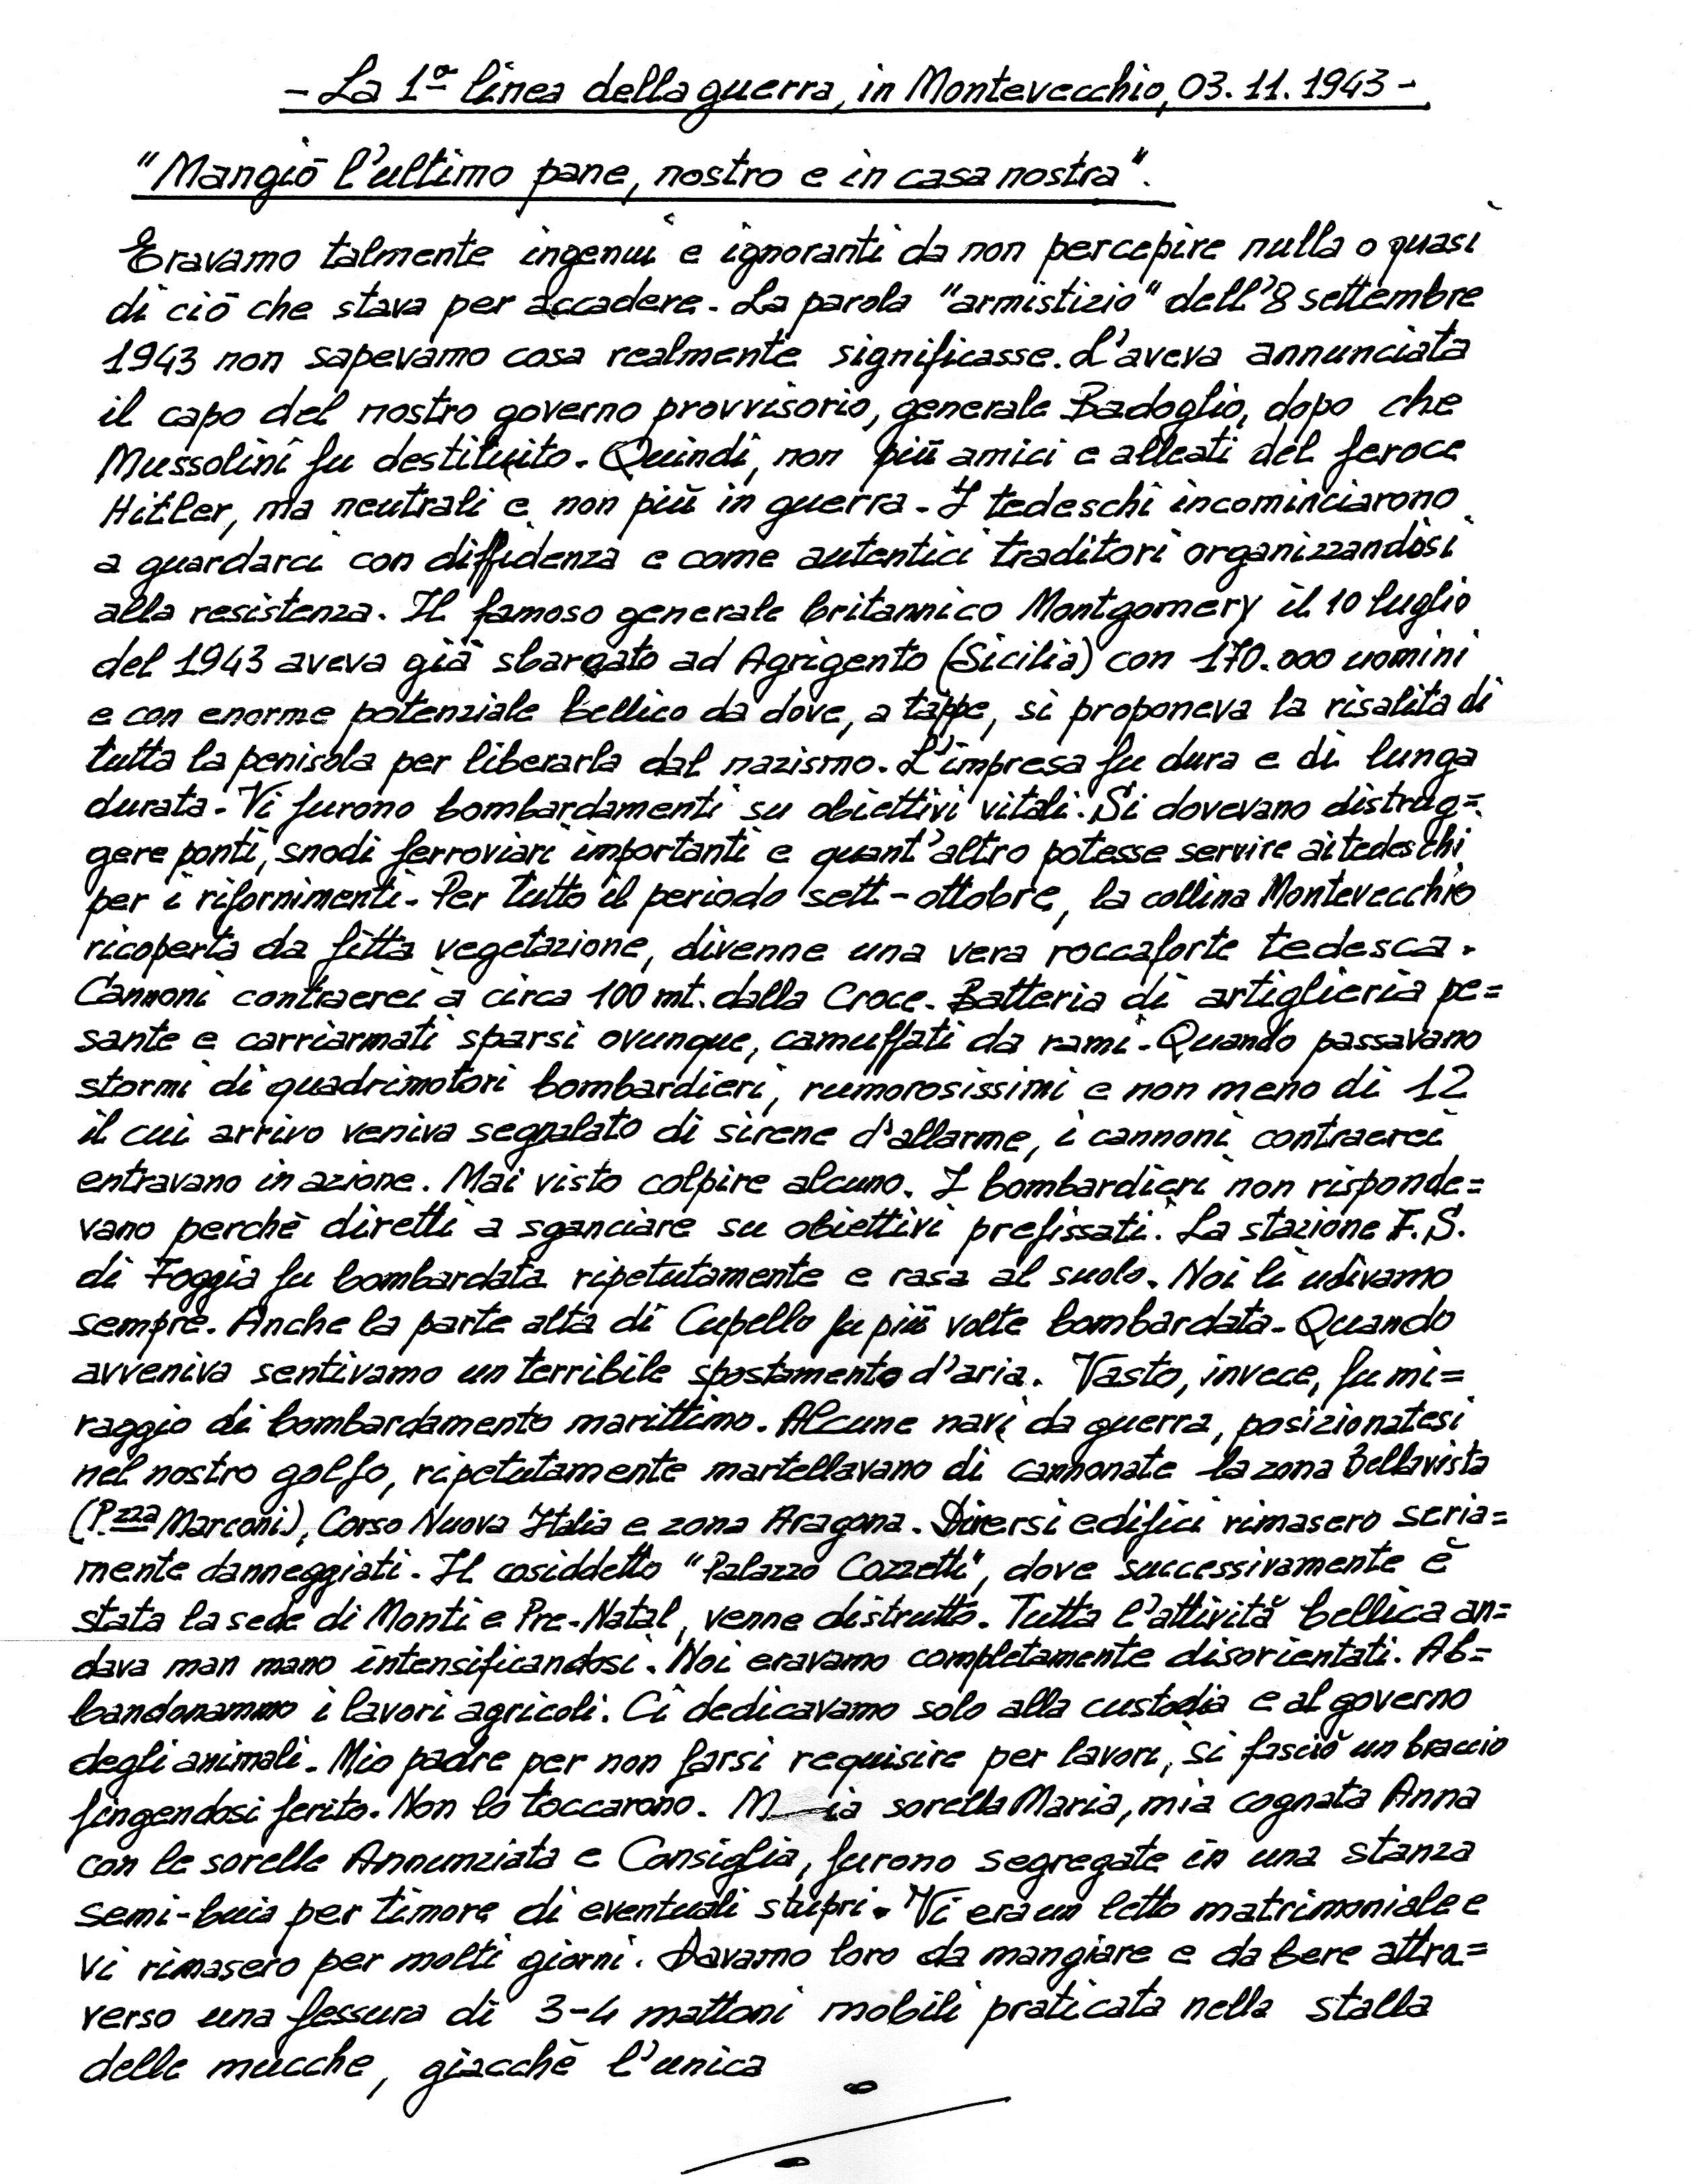 - La 1ª linea della guerra, in Montevecchio, 03.11.1943 -
"Mangiò l'ultimo pane, nostro e in casa nostra".
Eravamo talmente ingenui e ignoranti da non percepire nulla o quasi
di ciò che stava per accadere - La parola "armistizio" dell'8 settembre
1943 non sapevamo cosa realmente significasse. L'aveva annunciata
il capo del nostro governo provvisorio, generale Badoglio, dopo che
Mussolini fu destituito. Quindi, non più amici e alleati del feroce
Hitler, ma neutrali e non più in guerra - I tedeschi incominciarono
a guardarci con diffidenza e come autentici traditori organizzandosi
alla resistenza. Il famoso generale britannico Montgomery il 10 luglio
del 1943 aveva già sbarcato ad Agrigento (Sicilia) con 170.000 uomini
e con enorme potenziale bellico da dove, a tappe, si proponeva la risalita di
tutta la penisola per liberarla dal nazismo. L'impresa fu dura e di lunga
durata - Vi furono bombardamenti su obiettivi vitali. Si dovevano distrug=
gere ponti, snodi ferroviari importanti e quant'altro potesse servire ai tedeschi
per i rifornimenti - Per tutto il periodo sett-ottobre, la collina Montevecchio
ricoperta da fitta vegetazione, divenne una vera roccaforte tedesca.
Cannoni contraerei a circa 100 mt. dalla Croce. Batteria di artiglieria pe=
sante e carriarmati sparsi ovunque, camuffati da rami - Quando passavano
stormi di quadrimotori bombardieri, rumorosissimi e non meno di 12
il cui arrivo veniva segnalato di sirene d'allarme, i cannoni contraerei
entravano in azione. Mai visto colpire alcuno. I bombardieri non risponde=
vano perchè diretti a sganciare su obiettivi prefissati. La stazione F.S.
di Foggia fu bombardata ripetutamente e rasa al suolo. Noi li udivamo
sempre. Anche la parte alta di Cupello fu più volte bombardata - Quando
avveniva sentivamo un terribile spostamento d'aria. Vasto, invece, fu mi=
raggio di bombardamento marittimo. Alcune navi da guerra, posizionatesi
nel nostro golfo, ripetutamente martellavano di cannonate la zona Bellavista
(P.zza Marconi), Corso Nuova Italia e zona Aragona. Diversi edifici rimasero seria=
mente danneggiati. Il cosiddetto "Palazzo Cozzetti", dove successivamente è
stata la sede di Monti e Pre-Natal, venne distrutto. Tutta l'attività bellica an=
dava man mano intensificandosi. Noi eravamo completamente disorientati. Ab=
bandonammo i lavori agricoli. Ci dedicavamo solo alla custodia e al governo
degli animali. Mio padre per non farsi requisire per lavori, si fasciò un braccio
fingendosi ferito. Non lo toccarono. M ia sorella Maria, mia cognata Anna
con le sorelle Annunziata e Consiglia, furono segregate in una stanza
semi-buia per timore di eventuali stupri. Vi era un letto matrimoniale e
vi rimasero per molti giorni. Davamo loro da mangiare e da bere attra=
verso una fessura di 3-4 mattoni mobili praticata nella stalla
delle mucche, giacchè l'unica